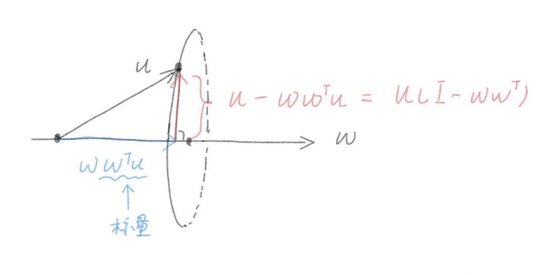 u
u - ww^T u = u(I - ww^T)
w
ww^T u
标量